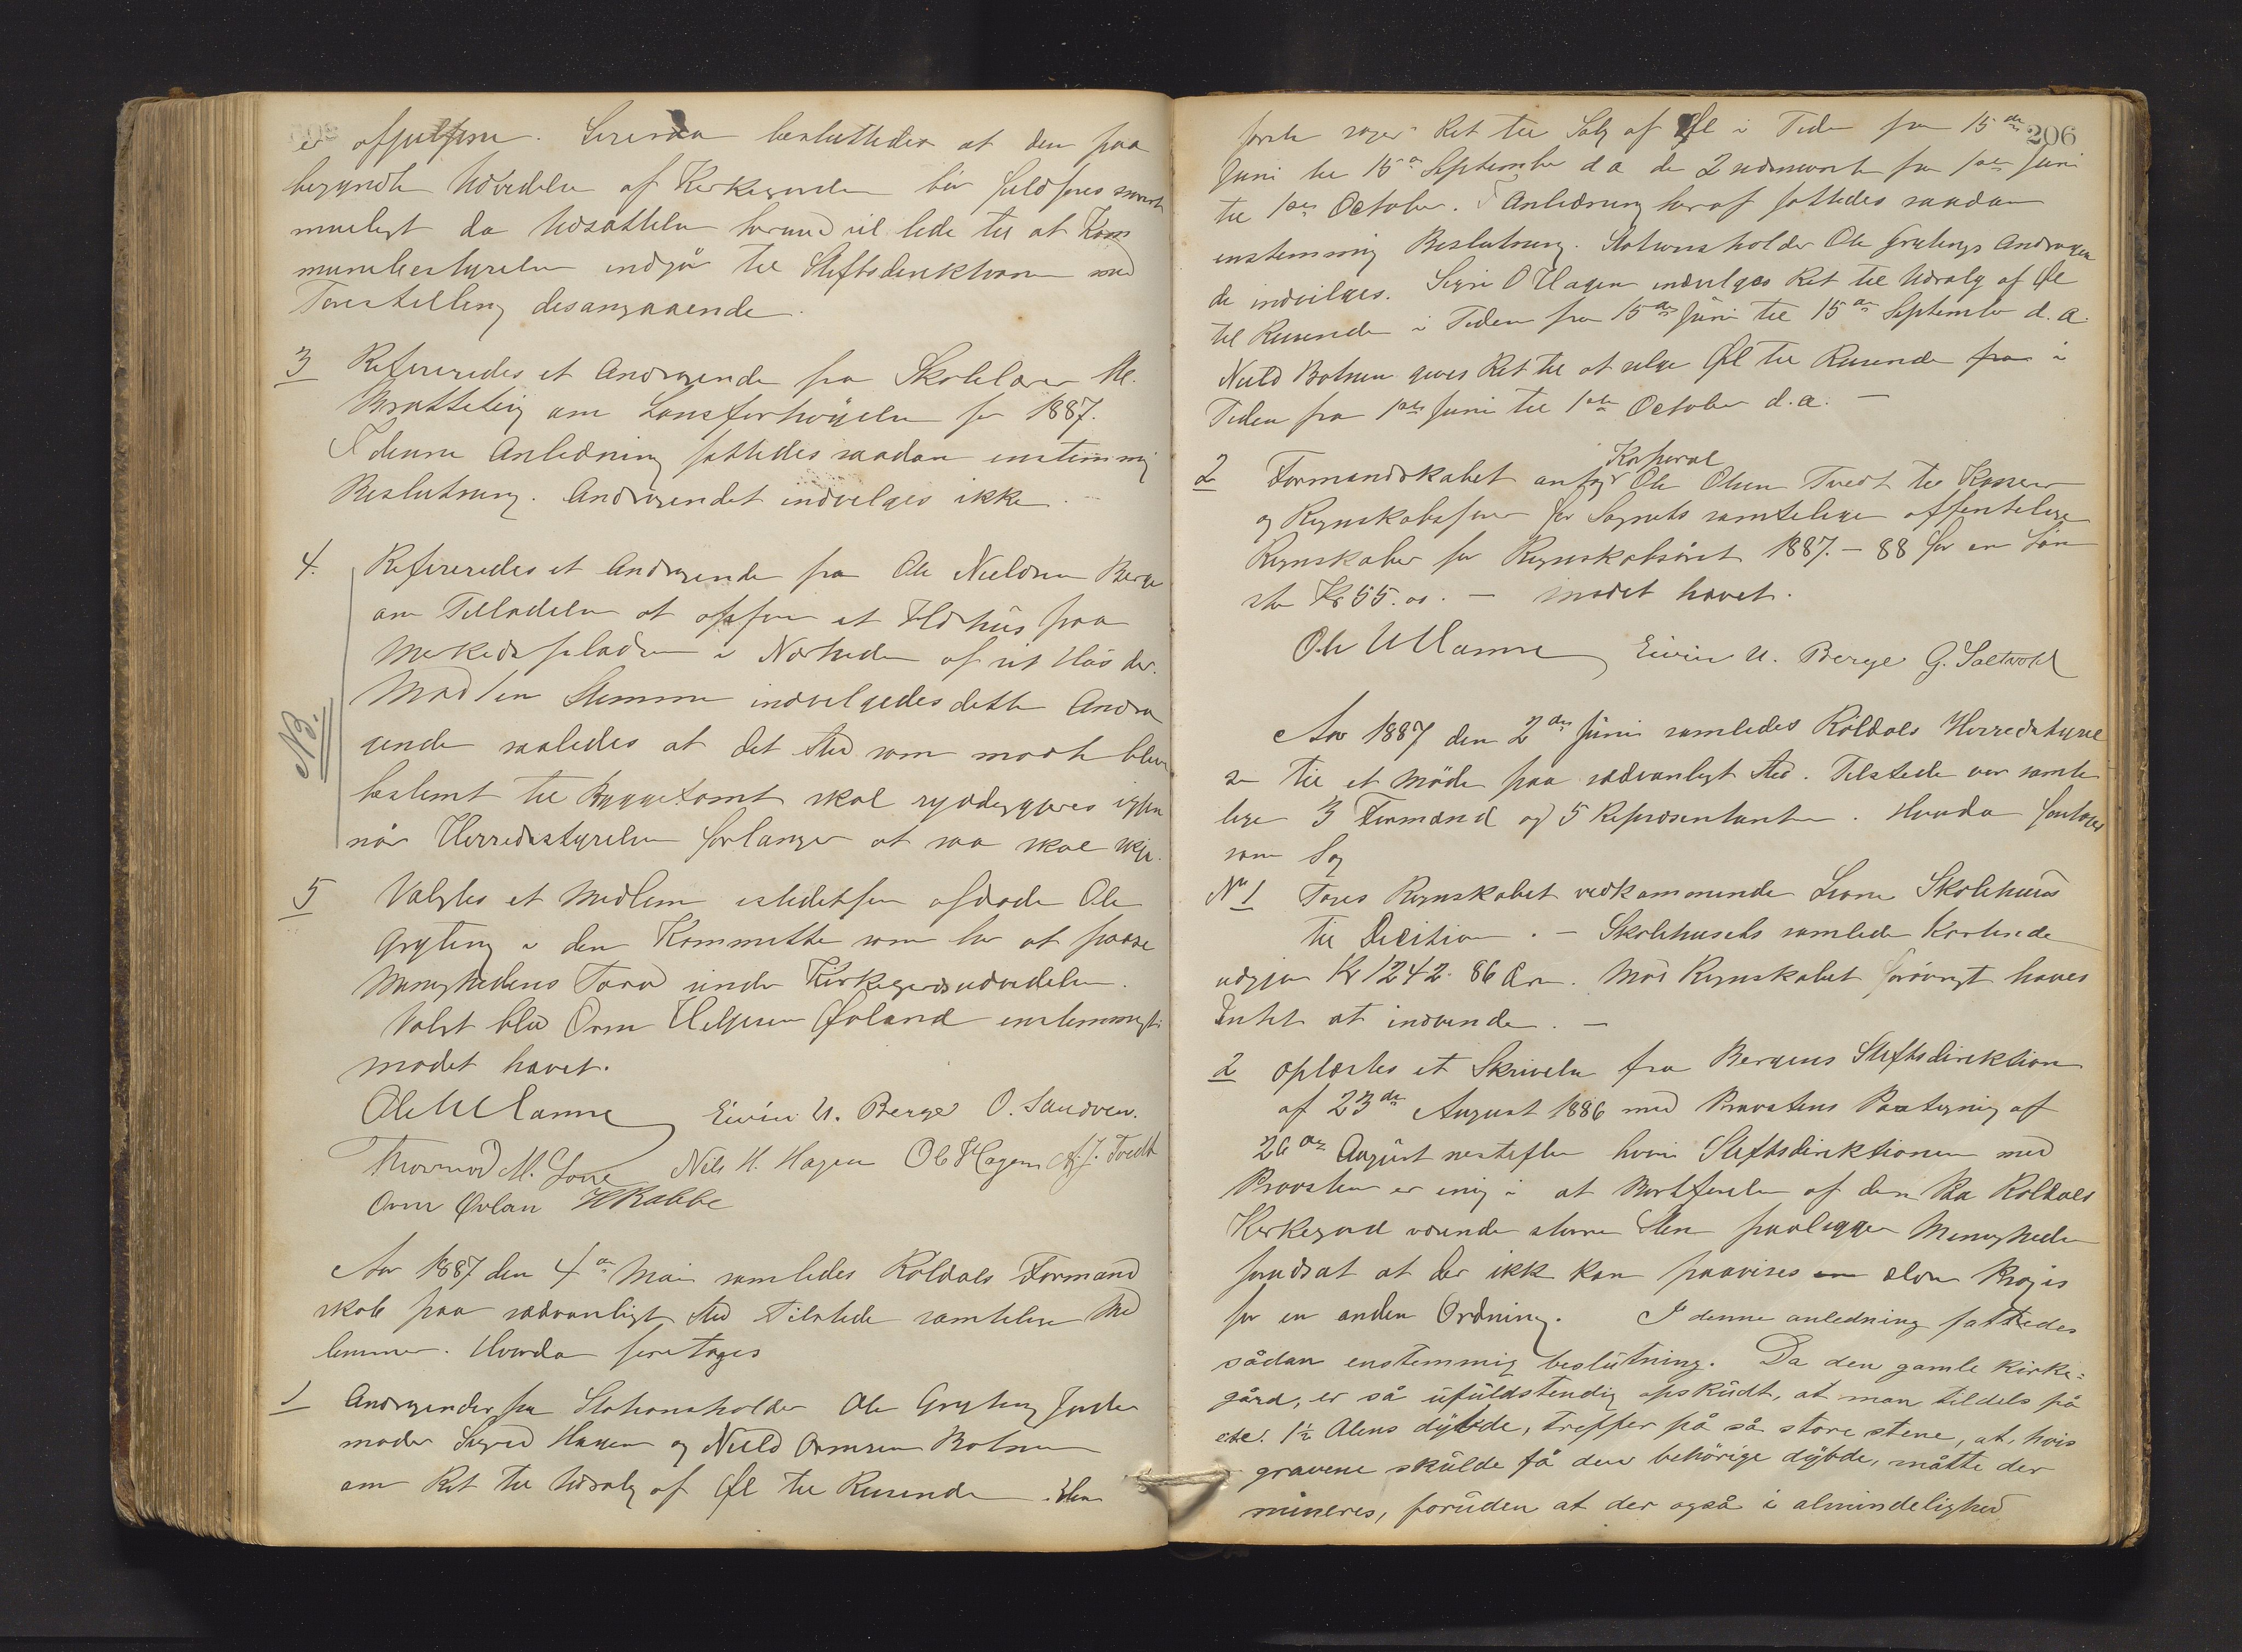 er Ligesaa besluttedes at den paa
begyndte Udvidelse af Kirkegaarden bør fuldføres snarest
mueligt da Udsættelse hermed vil lede til at Kom
munebestyrelsen indgår til Stiftsdirektionen med
Forestilling desangaaende.
3 Refereredes et Andragende fra Skolelærer M.
Bratteteig om Lønsforhöyelse for 1887.
I denne Anledning fattedes saadan enstemmig
Beslutning. Andragendet indvelges ikke.
4. Refereredes et Andragende fra Ole Nielsen Berge
om Tilladelse at opføre et Ildhus paa
Markedspladsen i Nærheden af sit Hus der.
Mod en Stemme indvelgedes dette Andra
gende saaledes at det Sted som maatte blive
bestemt til Byggetomt skal ryddeggjøres igjen
når Herredsstyrelsen forlanger at saa skal skje.
NB.
5 Valgtes et Medlem istedetfor afdøde Ole
Gryting i den Kommitte som har at paase
Menighedens Tarv under Kirkegaardsudvidelsen.
Valgt blev Orm Helgesen Øvland enstemmigt.
mødet hævet.
Ole U Hamre Eivin U. Berge O. Sandven.
Thormod M. Lone Nils H. Hagen Ole Hagen A. J. Tvedt
Orm Øvlan H Rabbe
Aar 1887 den 4de Mai samledes Röldals Formand
skab paa sædvanligt Sted Tilstede samtelige Med
lemmer. Hvorda foretages
1 Andragender fra Stationsholder Ole Gryting Jorde
moder Sigrid Hagen og Nield Ormsen Botnen
om Ret til Udsalg af Øl til Reisende. Den
206
første søger Ret til Salg af Øl i Tiden fra 15de
Juni til 15de September d a de 2 sidsnævnte fra 1ste Juni
til 1ste October. I Anledning heraf fattedes saadan
enstemmig Beslutning. Stationsholder Ole Grytings Andragen
de indvilges. Sigri O Hagen indvelges Ret til Udsalg af Øl
til Reisende i Tiden fra 15de Juni til 15de September d. a.
Nield Botnen gives Ret til at selge Øl til Reisende fra i
Tiden fra 1ste Juni til 1ste October d.a. —
2 Formandskabet antager Korporal Ole Olsen Tvedt til Kasserer
og Regnskabsfører for Sognets samtelige offentelige
Regnskaber for Regnskabsåret 1887. – 88 for en Løn
stor Kr 55.00. — mødet hævet.
Ole U Hamre Eivin U. Berge G. Saltvold
Aar 1887 den 2den Juni samledes Röldals Herredsstyrel
se til et Möde paa sædvanligt Sted. Tilstede var samte
lige 3 Formænd og 5 Repræsentanter. Hvorda foretoges
som Sag
No 1 Toges Regnskabet vedkommende Lone Skolehuus
til Decition. — Skolehusets samlede Kostende
udgjør Kr 1242. 86 Øre. Mod Regnskabet forøvrigt haves
Intet at indvende. —
2 oplæstes et Skrivelse fra Bergens Stiftsdirektion
af 23de August 1886 med Provstens Paategning af
26de August nestefter hvori Stiftsdirektionen med
Provsten er enig i at Bortførelse af den Paa Röldals
Kirkegaard værende større Sten paaligger Menigheden
forudsat at der ikke kan paavises en ældre Praxis
for en anden Ordning. I denne anledning fattedes
sådan enstemmig beslutning. Da den gamle kirke=
gård, er så ufuldstendig opskudt, at man tildels på
1½ Alens dybde, treffer på så store stene, at, hvis
gravene skulde få den behörige dybde, måtte der
mineres, foruden at der også i almindelighed